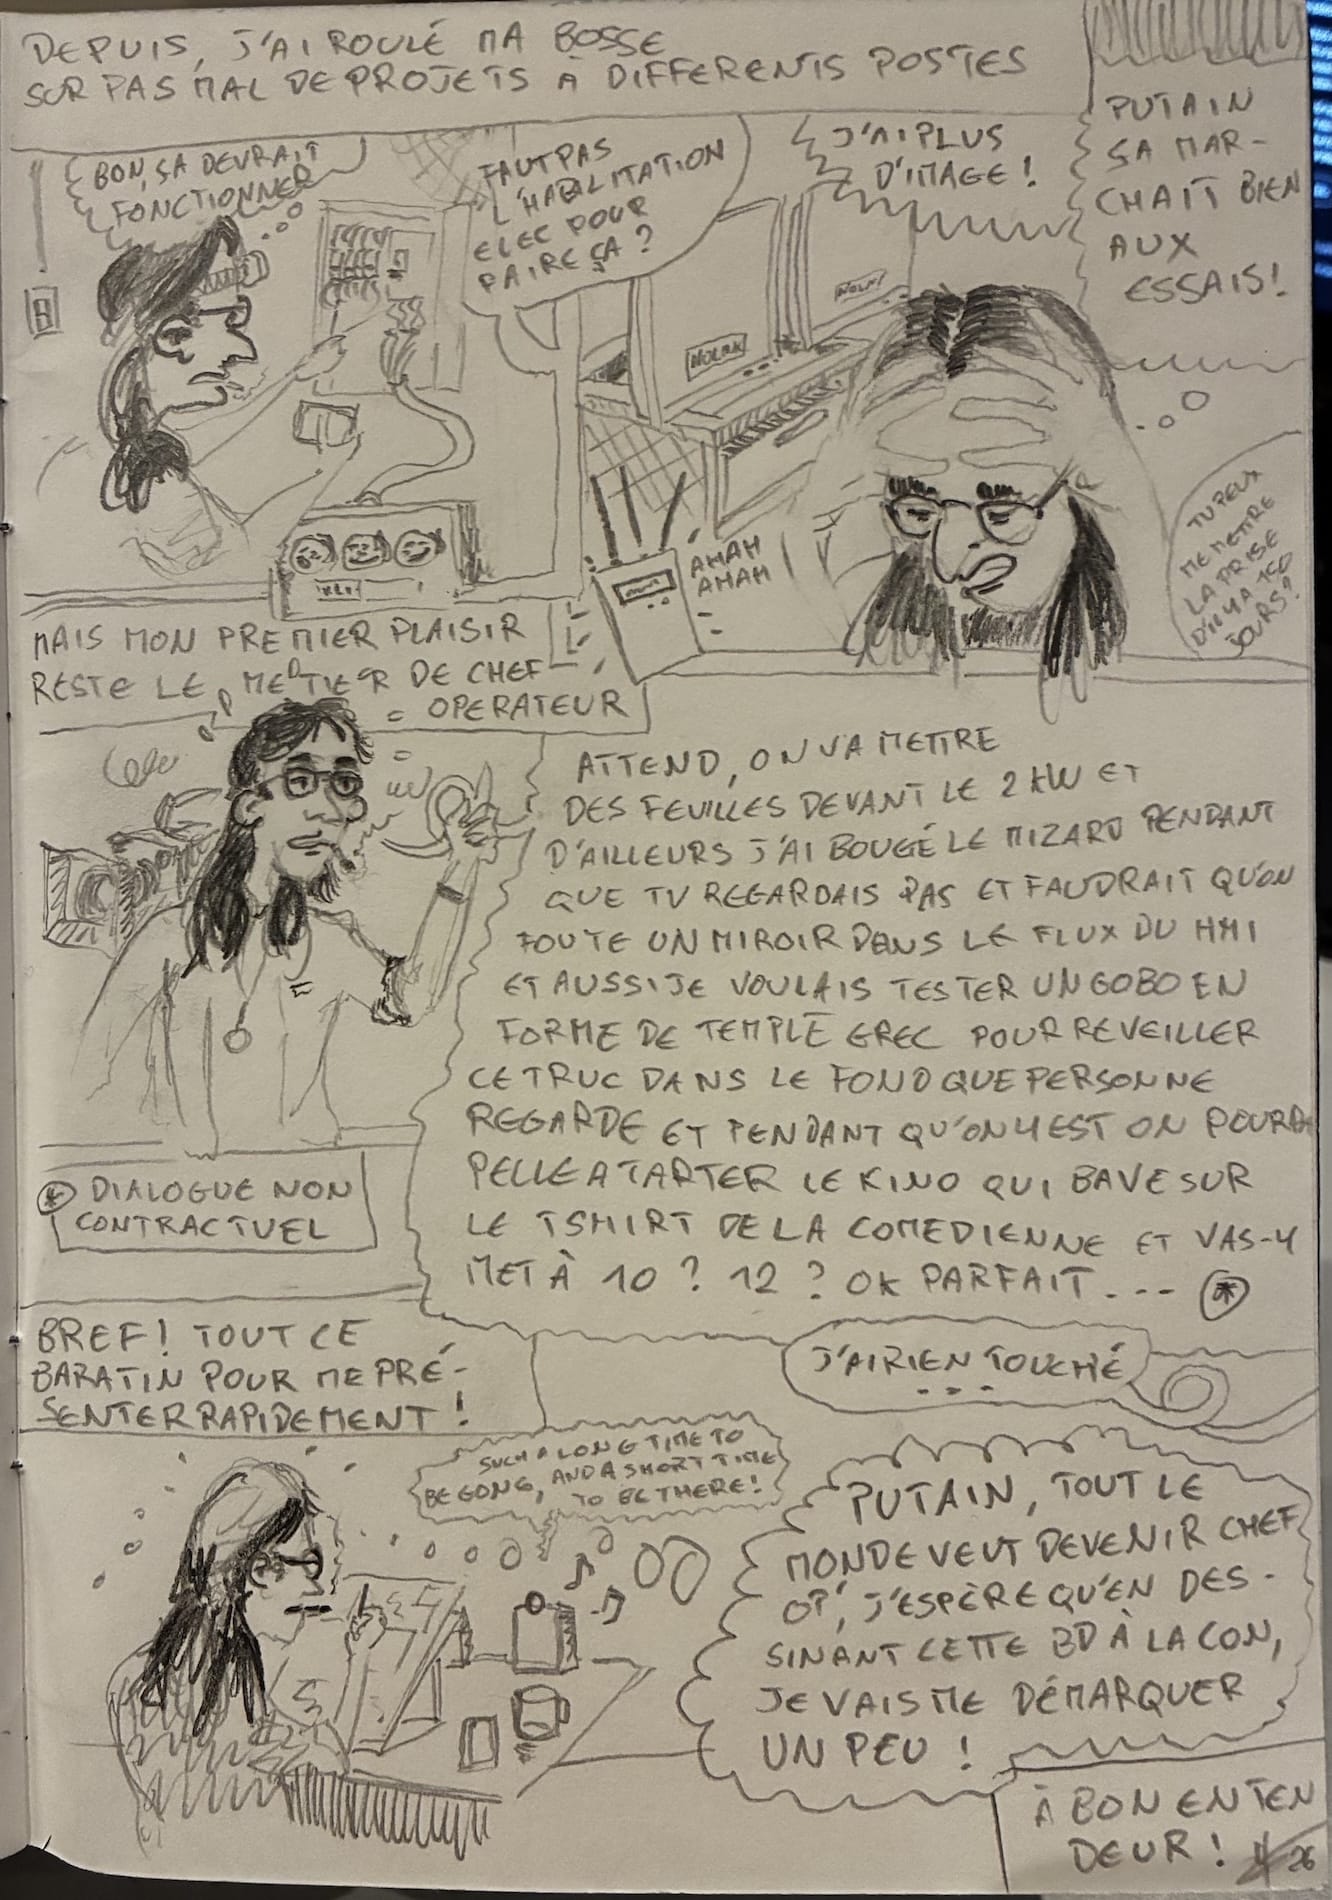 DEPUIS, J'AI ROULÉ MA BOSSE
SUR PAS MAL DE PROJETS À DIFFERENTS POSTES
BON, SA DEVRAIT
FONCTIONNER
FAUT PAS
L'HABILITATION
ELEC POUR
FAIRE ÇA ?
J'AI PLUS
D'IMAGE !
PUTAIN
SA MAR-
CHAIT BIEN
AUX
ESSAIS !
AHAH
AHAH
TU PEUX
ME METTRE
LA PRISE
D'IL Y A 150
JOURS ?
MAIS MON PREMIER PLAISIR
RESTE LE METIER DE CHEF
OPERATEUR
ATTEND, ON VA METTRE
DES FEUILLES DEVANT LE 2 KW ET
D'AILLEURS J'AI BOUGÉ LE MIZARD PENDANT
QUE TU REGARDAIS PAS ET FAUDRAIT QU'ON
FOUTE UN MIROIR DANS LE FLUX DU HMI
ET AUSSI JE VOULAIS TESTER UN GOBO EN
FORME DE TEMPLE GREC POUR REVEILLER
CE TRUC DANS LE FOND QUE PERSONNE
REGARDE ET PENDANT QU'ON Y EST ON POURRA
PELLE A TARTER LE KINO QUI BAVE SUR
LE TSHIRT DE LA COMEDIENNE ET VAS-Y
MET À 10 ? 12 ? OK PARFAIT . . . *
* DIALOGUE NON
CONTRACTUEL
J'AI RIEN TOUCHÉ
. . .
BREF ! TOUT CE
BARATIN POUR ME PRÉ-
SENTER RAPIDEMENT !
SUCH A LONG TIME TO
BE GONE, AND A SHORT TIME
TO BE THERE !
PUTAIN, TOUT LE
MONDE VEUT DEVENIR CHEF
OP', J'ESPÈRE QU'EN DES-
SINANT CETTE BD À LA CON,
JE VAIS ME DÉMARQUER
UN PEU !
À BON ENTEN
DEUR !
26